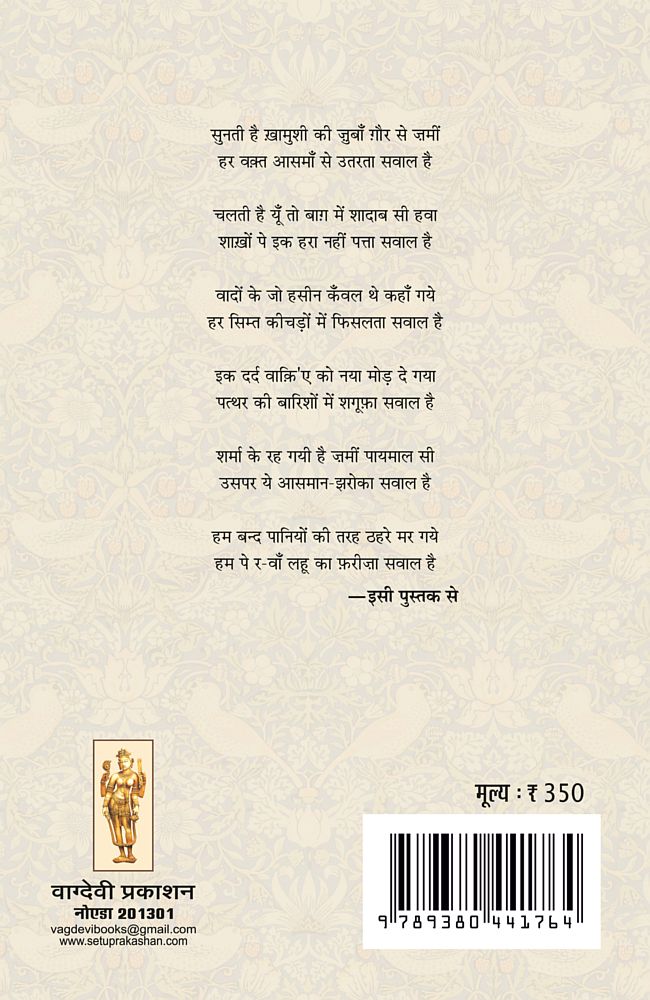 सुनती है ख़ामुशी की ज़ुबाँ ग़ौर से ज़मीं
हर वक़्त आसमाँ से उतरता सवाल है
चलती है यूँ तो बाग़ में शादाब सी हवा
शाख़ों पे इक हरा नहीं पत्ता सवाल है
वादों के जो हसीन कँवल थे कहाँ गये
हर सिम्त कीचड़ों में फिसलता सवाल है
इक दर्द वाक़ि'ए को नया मोड़ दे गया
पत्थर की बारिशों में शगूफ़ा सवाल है
शर्मा के रह गयी है ज़मीं पायमाल सी
उसपर ये आसमान-झरोका सवाल है
हम बन्द पानियों की तरह ठहरे मर गये
हम पे र-वाँ लहू का फ़रीज़ा सवाल है
—इसी पुस्तक से
मूल्य : ₹ 350
9 789380 441764
वाग्देवी प्रकाशन
नोएडा 201301
vagdevibooks@gmail.com
www.setuprakashan.com